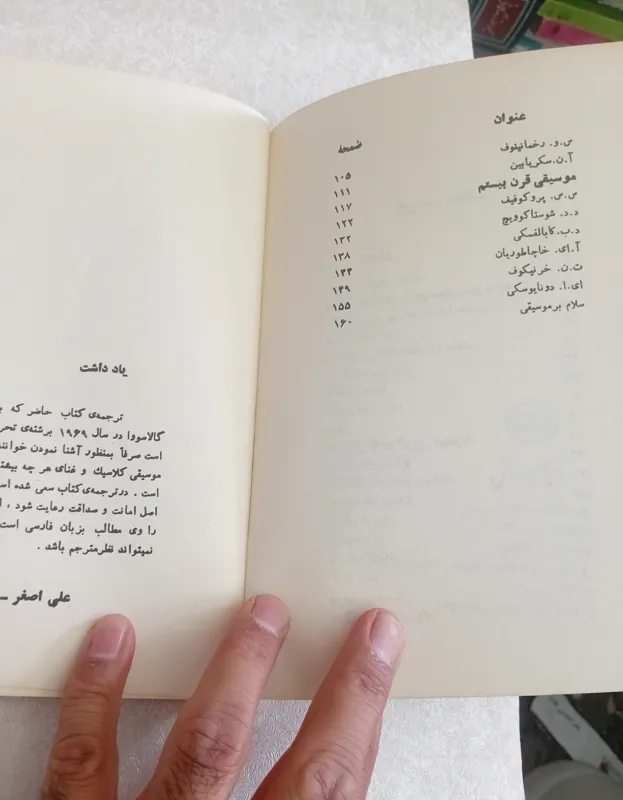 عنوان صفحه
س.و. رخمانینوف ۱۰۵
آ.ن.سکریابین ۱۱۱
موسیقی قرن بیستم ۱۱۷
س.س. پروکوفیف ۱۲۲
د.د. شوستاکوویچ ۱۳۲
د.ب.کابالفسکی ۱۳۸
آ.ای. خاچاطوریان ۱۴۴
ت.ن. خرنیکوف ۱۴۹
ای.ا. دونایوسکی ۱۵۵
سلام برموسیقی ۱۶۰
یاد داشت
ترجمه‌ی کتاب حاضر که
گالاسووا در سال ۱۹۶۹ برشته‌ی
است صرفاً بمنظور آشنا نمودن
موسیقی کلاسیك و غنای هر چه
است . درترجمه‌ی کتاب سعی شده
اصل امانت و صداقت رعایت شود ،
را وی مطالب بزبان فارسی است
نمیتواند نظرمترجم باشد .
علی اصغر ـ